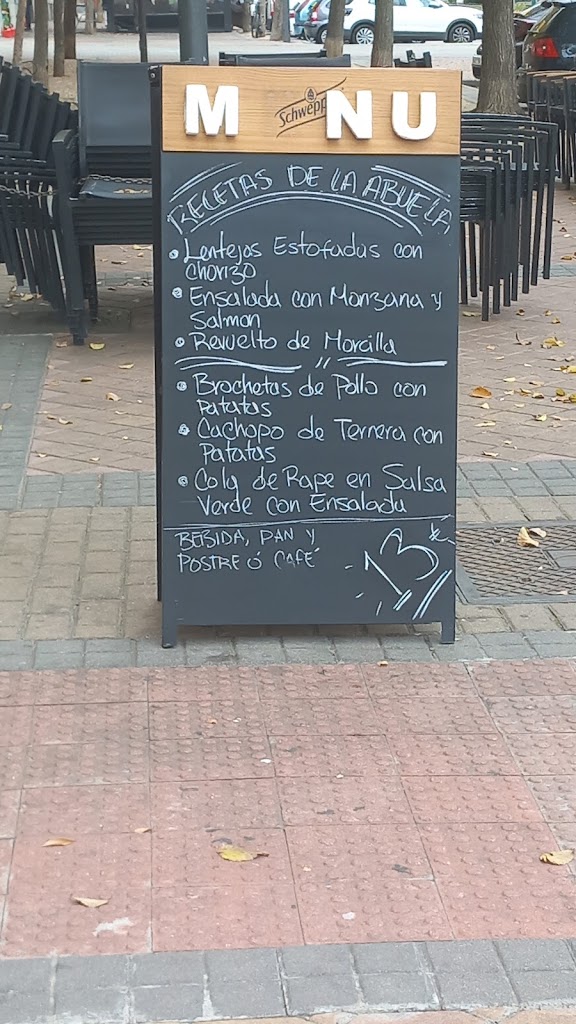 M NU
Schwepp
RECETAS DE LA ABUELA
• Lentejas Estofadas con
Chorizo
• Ensalada con Manzana y
Salmon
• Revuelto de Morcilla
"
• Brochetas de Pollo con
Patatas
• Cachopo de Ternera con
Patatas
• Cola de Rape en Salsa
Verde con Ensalada
BEBIDA, PAN Y
POSTRE Ó CAFÉ
13€